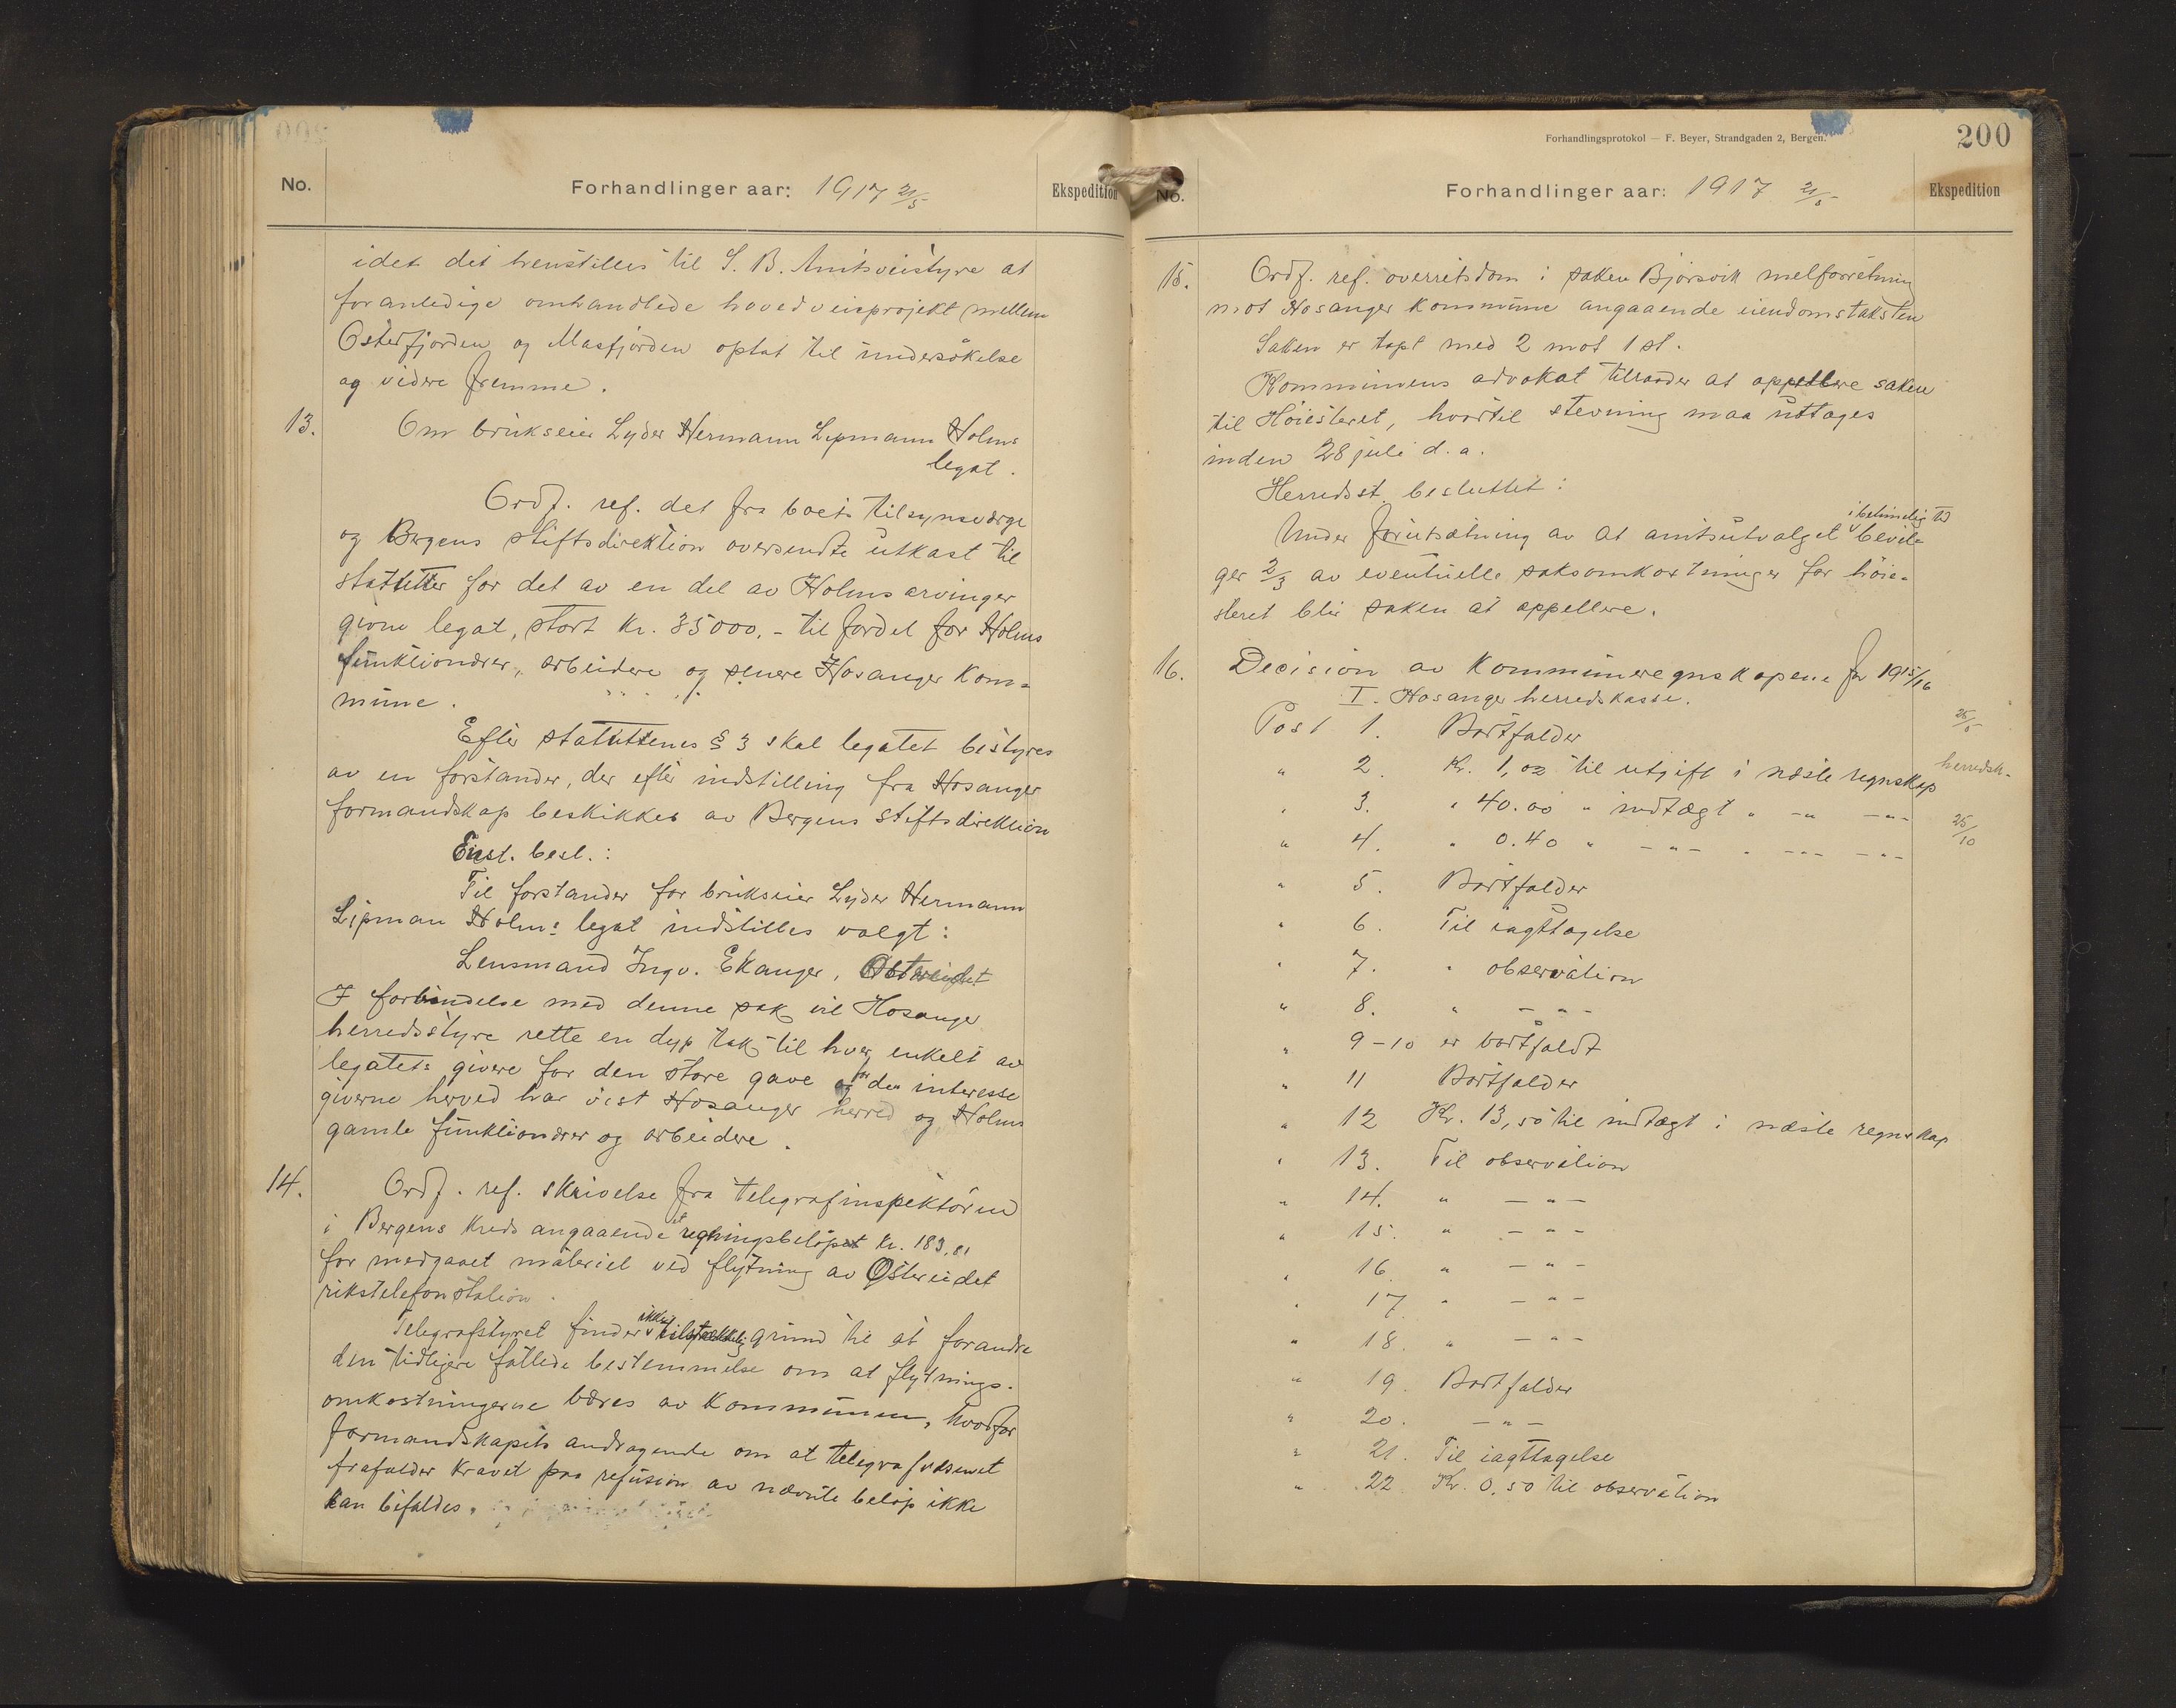 No.
Forhandlinger aar: 1917 21/5
Ekspedition
idet det henstilles til S. B. Amtsveistyre at
foranledige omhandlede hovedveisprojekt mellem
Osterfjorden og Masfjorden optat til undersøkelse
og videre fremme.
13. Om brukseier Lyder Hermann Lipmann Holms
legat.
Ordf. ref. det fra boets tilsynsværge
og Bergens stiftsdirektion oversendte utkast til
statutter for det av en del av Holms arvinger
givne legat, stort kr. 35000.- til fordel for Holms
funktionærer, arbeidere og senere Hosanger kom-
mune.
Efter statuttenes § 3 skal legatet bestyres
av en forstander, der efter indstilling fra Hosanger
formandskap beskikkes av Bergens stiftsdirektion
Enst. besl.:
Til forstander for brukseier Lyder Hermann
Lipman Holms legat indstilles valgt:
Lensmand Ingv. Ekanger, Ostereidet
I forbindelse med denne sak vil Hosanger
herredsstyre rette en dyp tak til hver enkelt av
legatets givere for den store gave og for den interesse
giverne herved har vist Hosanger herred og Holms
gamle funktionærer og arbeidere.
14. Ordf. ref. skrivelse fra telegrafinspektøren
i Bergens kreds angaaende et regningsbeløp kr. 183,81
for medgaaet materiel ved flytning av Ostereidet
rikstelefonstation.
Telegrafstyret finder ikke tilstrækkelig grund til at forandre
den tidligere fattede bestemmelse om at flytnings-
omkostningerne bæres av kommunen, hvorfor
formandskapets andragende om at telegrafvæsenet
frafalder kravet paa refusion av nævnte beløp ikke
kan bifaldes.
Forhandlingsprotokol — F. Beyer, Strandgaden 2, Bergen.
200
No.
Forhandlinger aar: 1917 21/5
Ekspedition
15. Ordf. ref. overretsdom i saken Bjørsvik melforretning
mot Hosanger kommune angaaende eiendomstaksten
Saken er tapt med 2 mot 1 st.
Kommunens advokat tilraader at appellere saken
til Høiesteret, hvortil stevning maa uttages
inden 28 juli d. a.
Herredsst. besluttet:
Under forutsætning av at amtsutvalget i betimelig tid bevil-
ger 2/3 av eventuelle saksomkostninger for høie-
steret blir saken at appellere.
16. Decision av kommuneregnskapene for 1915/16
I. Hosanger herredskasse.
Post 1. Bortfalder
25/5
" 2. Kr. 1,02 til utgift i næste regnskap
herredsk.
" 3. " 40.00 " indtægt " -"- -"-
25/10
" 4. " 0.40 " -"- " -"- -"-
" 5. Bortfalder
" 6. Til iagttagelse
" 7. " observation
" 8. " -"-
" 9-10 er bortfaldt
" 11 Bortfalder
" 12 Kr. 13,50 til indtægt i næste regnskap
" 13. Til observation
" 14. " -"-
" 15. " -"-
" 16. " -"-
" 17 " -"-
" 18. " -"-
" 19. Bortfalder
" 20. -"-
" 21. Til iagttagelse
" 22. Kr. 0.50 til observation